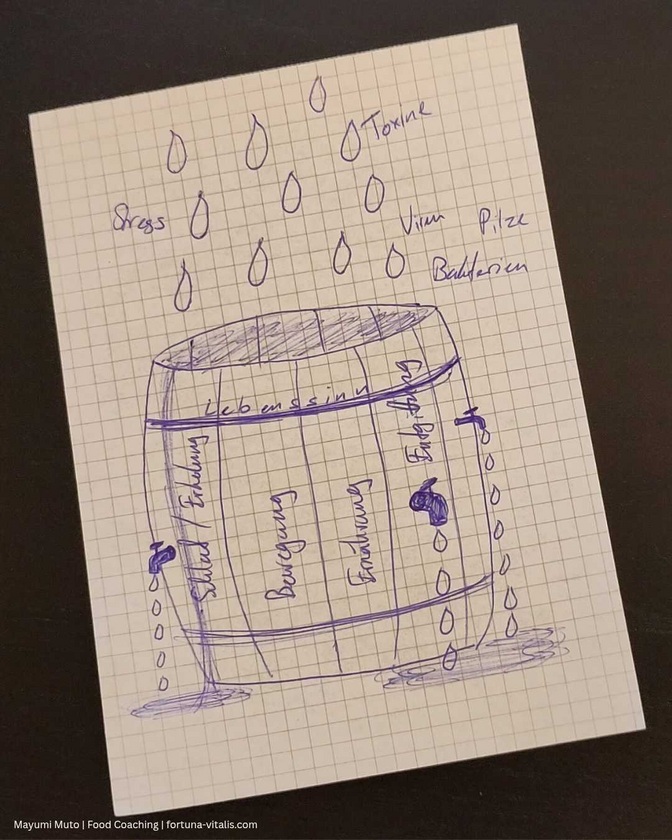 Toxine
Stress
Viren
Pilze
Bakterien
Lebenssinn
Schlaf / Erholung
Bewegung
Ernährung
Entgiftung
Mayumi Muto | Food Coaching | fortuna-vitalis.com